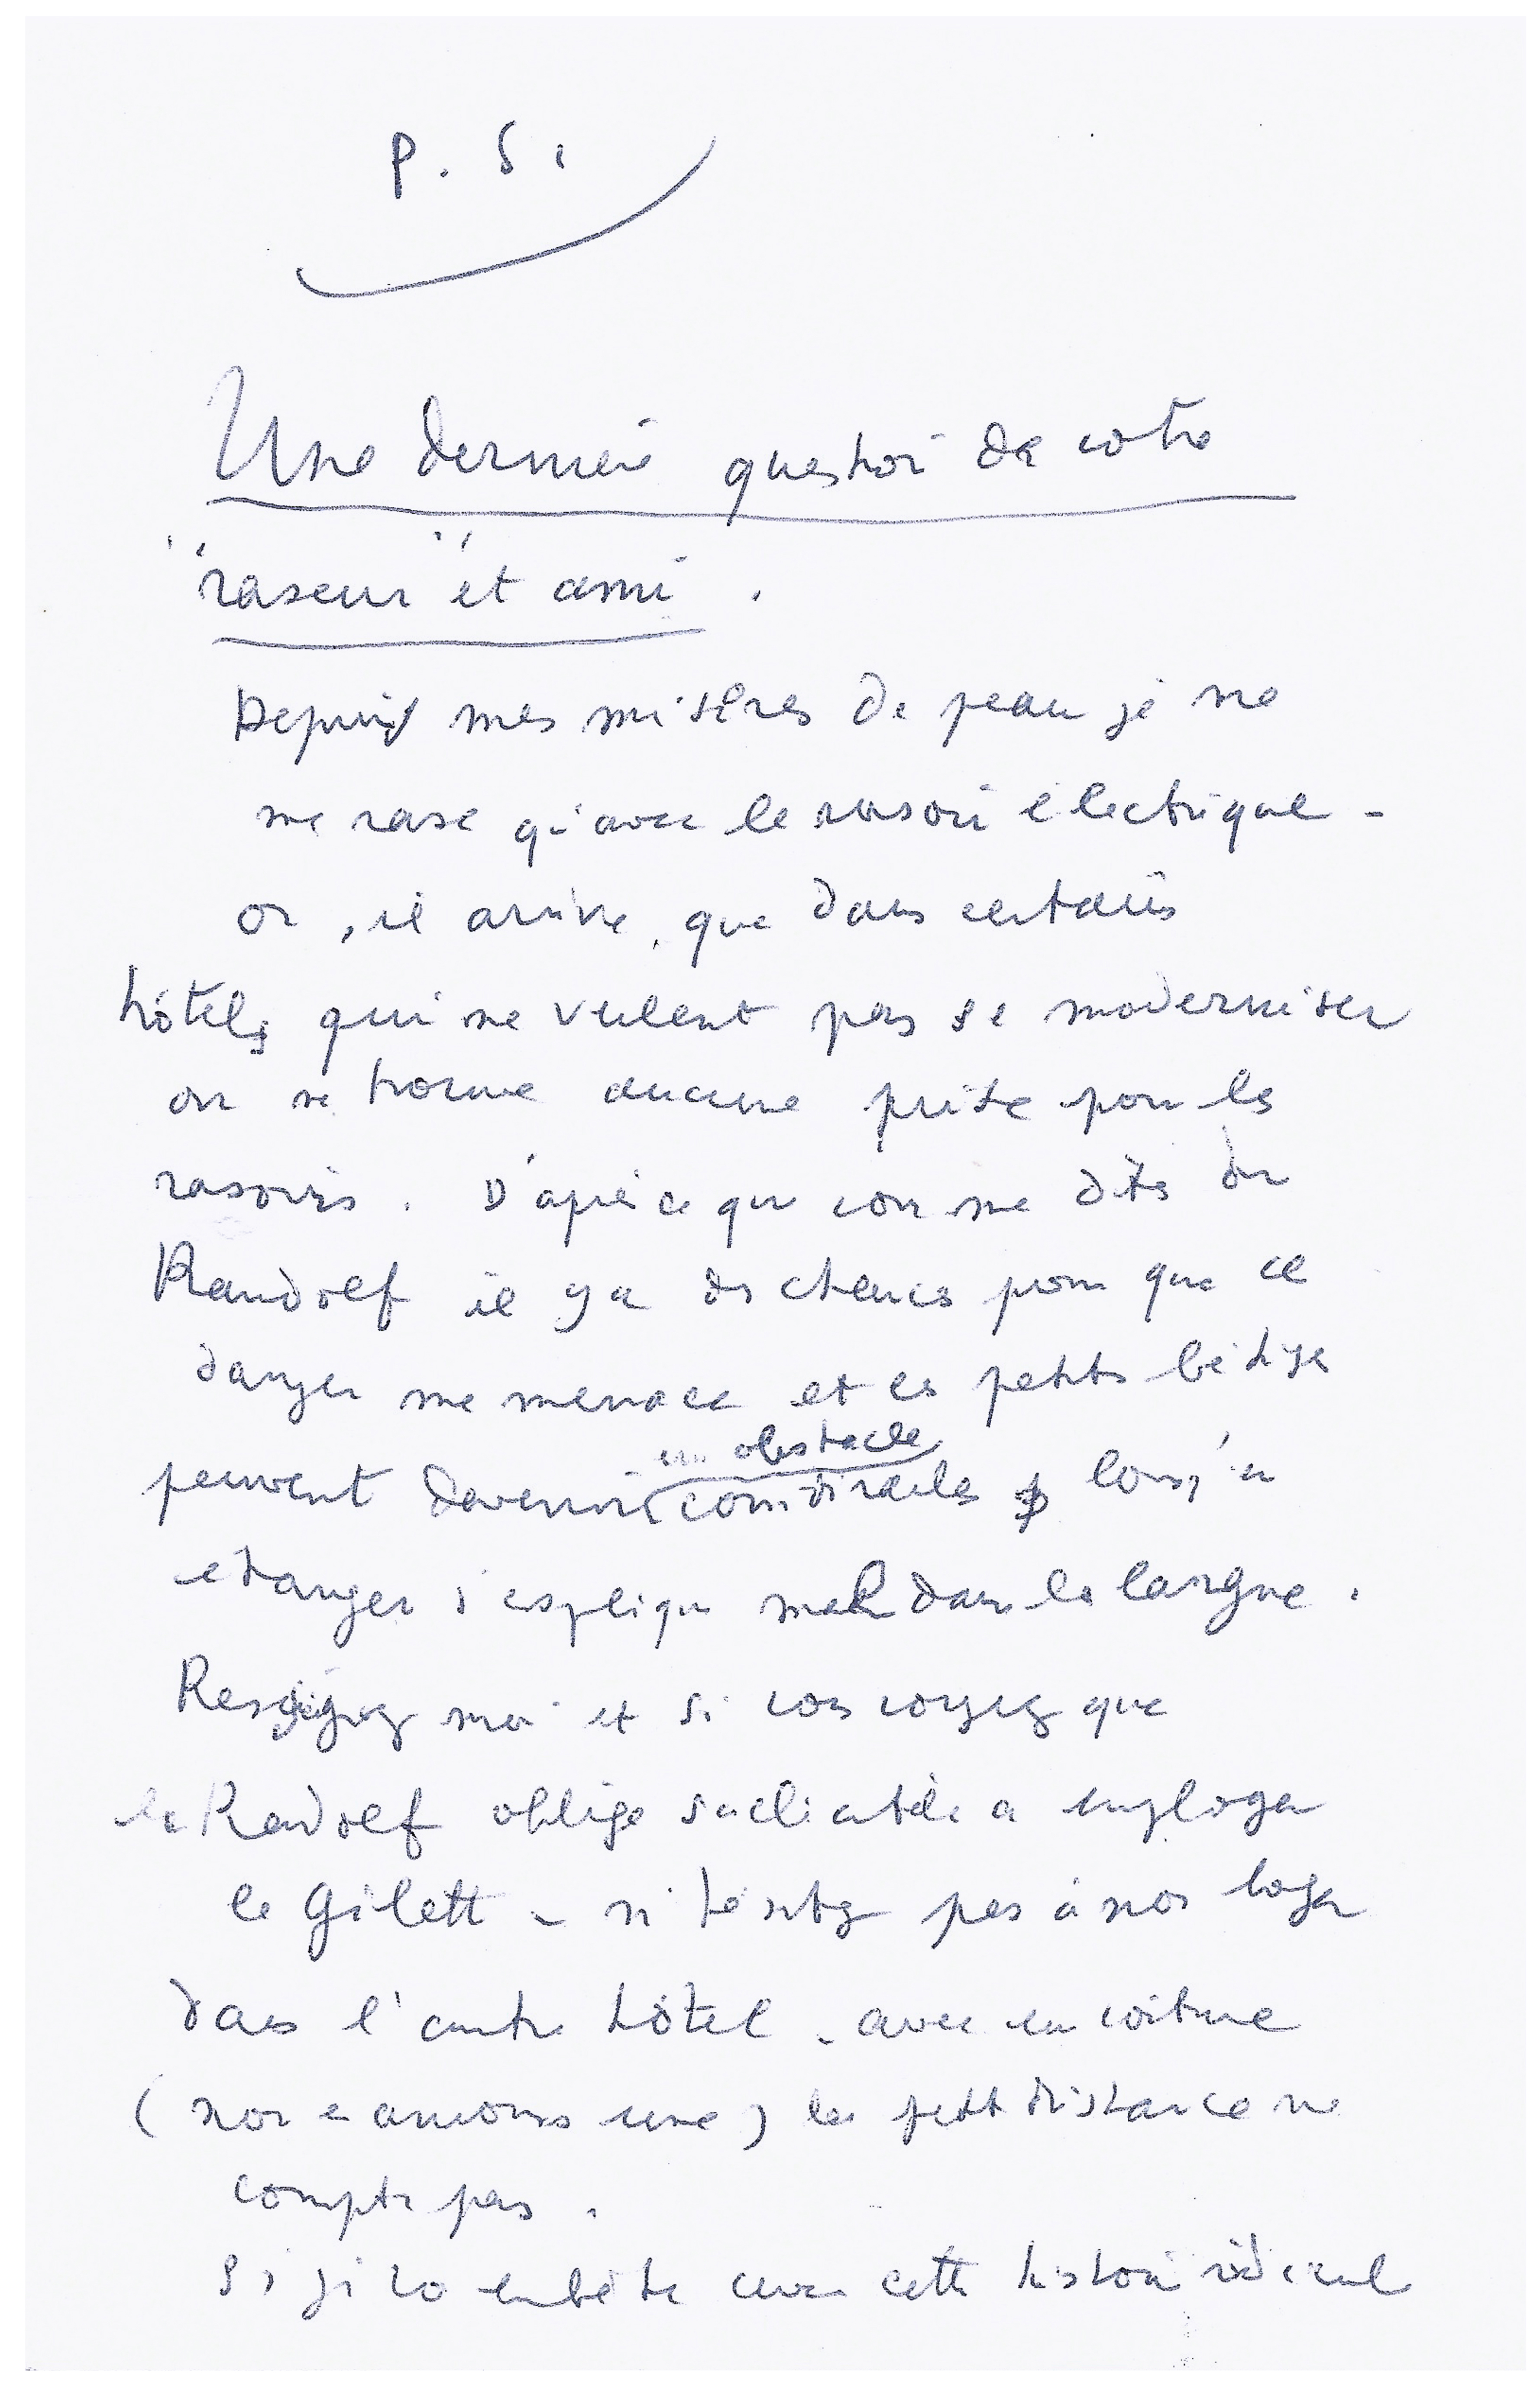 P. S.
Une dernière question de votre
"raseur" et ami.
Depuis mes misères de peau je ne
me rase qu'avec le rasoir électrique -
or, il arrive, que dans certains
hôtels qui ne veulent pas se moderniser
on ne trouve aucune prise pour les
rasoirs. D'après ce que vous me dites du
Randolf il y a des chances pour que ce
danger me menace et ces petites bêtises
peuvent devenir un obstacle considérables lorsq'un
etranger s'explique mal dans la langue.
moi et si vous voyez que
le Randolf oblige sa clientèle a employer
le Gilett - n'hésitez pas à nous loger
dans l'autre hôtel - avec une voiture
(nous en aurons une) la petite distance ne
compte pas.
Si je vous embête avec cette histoire ridicule